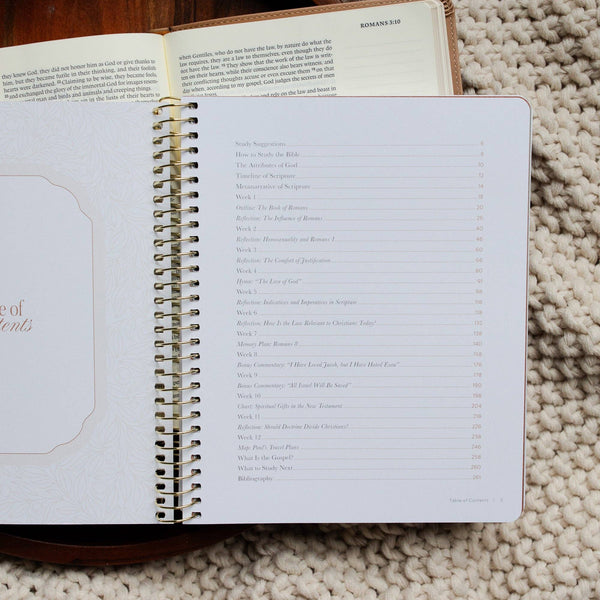 ROMANS 3:10
they knew God, they did not honor him as God or give thanks to
him, but they became futile in their thinking, and their foolish
were darkened. Claiming to be wise, they became fools,
and exchanged the glory of the immortal God for images resem-
man and birds and animals and creeping things.
in the lusts of their hearts to
when Gentiles, who do not have the law, by nature do what the
law requires, they are a law to themselves, even though they do
not have the law. 15 They show that the work of the law is writ-
ten on their hearts, while their conscience also bears witness, and
their conflicting thoughts accuse or even excuse them 16 on that
day when, according to my gospel, God judges the secrets of men
and rely on the law and boast
e of
tents
Study Suggestions
How to Study the Bible
The Attributes of God 10
Timeline of Scripture 12
Metanarrative of Scripture 14
Week 1
Outline: The Book of Romans 20
Reflection: The Influence of Romans
Week 2 40
Reflection: Homosexuality and Romans 1 46
Week 3 60
Reflection: The Comfort of Justification 66
Week 4
Hymn: "The Love of God" 91
Week 5
Reflection: Indicatives and Imperatives in Scripture
Week 6
Reflection: How Is the Law Relevant to Christians Today?
Week 7
Memory Plan: Romans 8 140
Week 8
Bonus Commentary: "I Have Loved Jacob, but I Have Hated Esau"
Week 9 178
Bonus Commentary: "All Israel Will Be Saved"
Week 10 198
Chart: Spiritual Gifts in the New Testament 204
Week 11 218
Reflection: Should Doctrine Divide Christians?
Week 12
Map: Paul's Travel Plans 246
What Is the Gospel? 258
What to Study Next 260
Bibliography 261
Table of Contents | 5